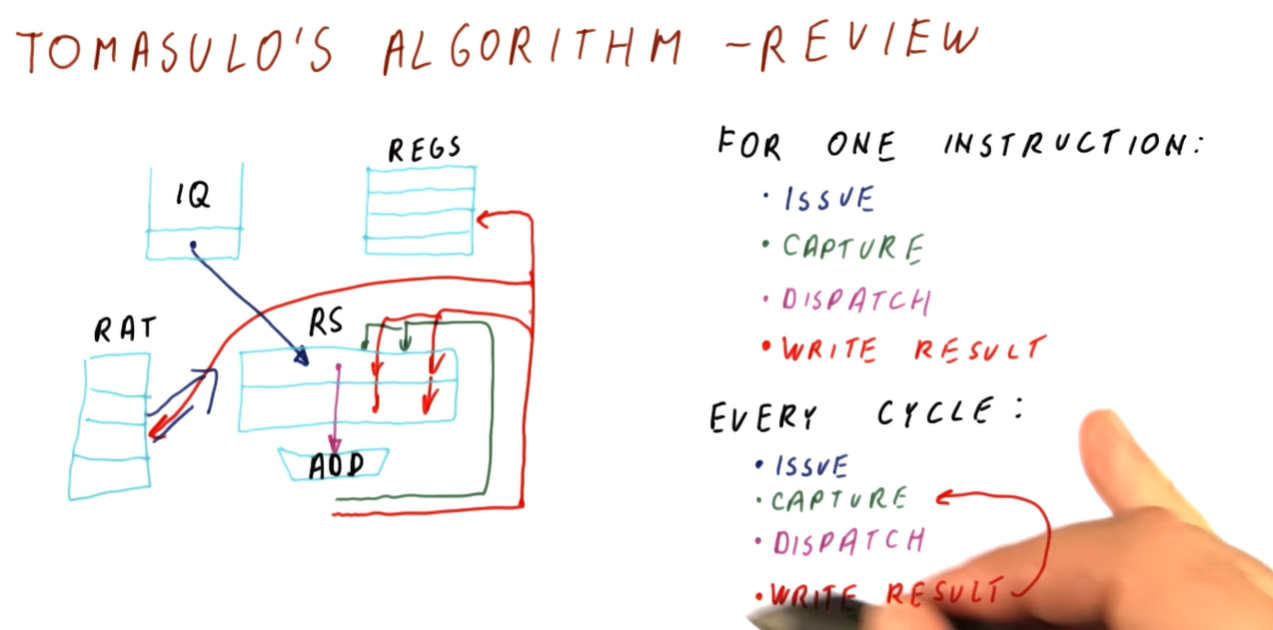 TOMASULO'S ALGORITHM - REVIEW
REGS
IQ
RAT
RS
ADD
FOR ONE INSTRUCTION:
• ISSUE
• CAPTURE
• DISPATCH
• WRITE RESULT
EVERY CYCLE:
• ISSUE
• CAPTURE
• DISPATCH
• WRITE RESULT